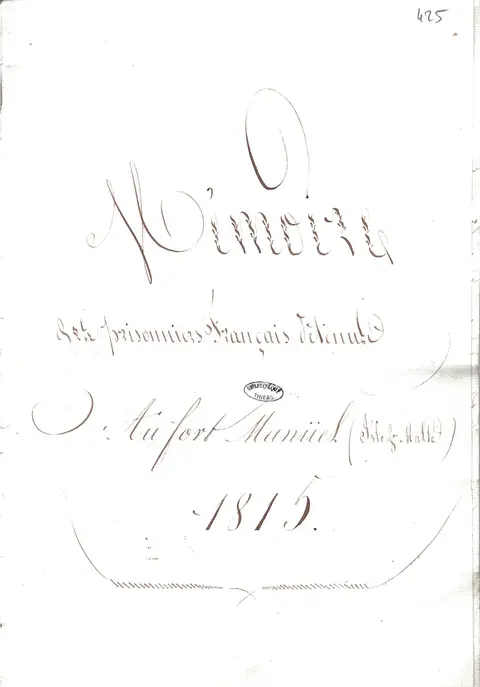 425
Mémoire
des prisonniers Français détenus
BIBLIOTHEQUE
THIERS
Au fort Manüel (Isle de Malte)
1815.